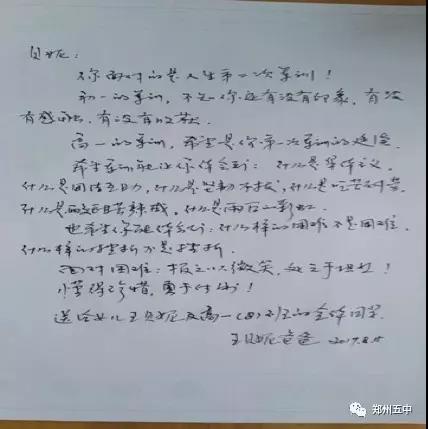 贝妮:
你面对的是人生第二次军训!
初一的军训,不知你还有没有印象,有没
有感触,有没有收获.
高一的军训,希望是你第一次军训的延续.
希望军训能让你体会到:什么是集体主义,
什么是团结互助,什么是坚韧不拔,什么是吃苦耐劳,
什么是酸甜苦辣咸,什么是雨后的彩虹.
也希望你能体会到:什么样的困难不是困难,
什么样的挫折不是挫折.
面对困难:报之以微笑,处之于坦然!
懂得珍惜,勇于付出!
送给女儿王贝妮及高一(四)班的全体同学.
王贝妮爸爸 2017.8.15
郑州五中